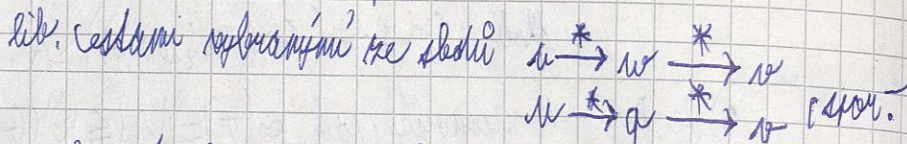 lib. cestami vybranými ze sledů u →* w →* v
u →* q →* v (spor.